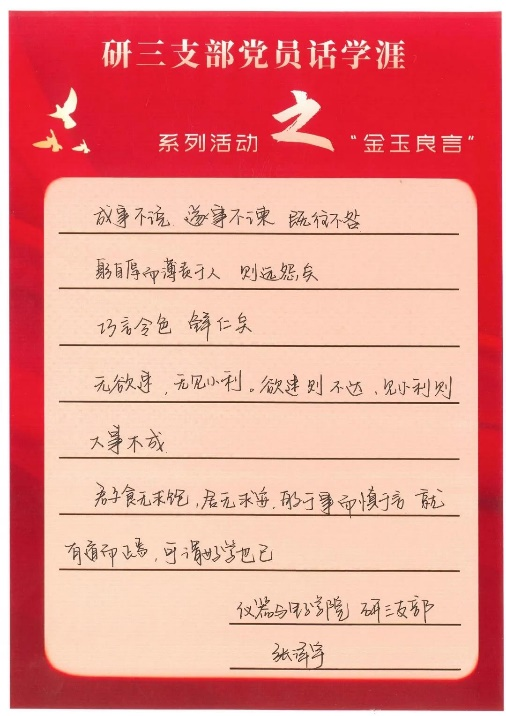 研三支部党员话学涯
系列活动 之 “金玉良言”
成事不说 遂事不谏 既往不咎
躬自厚而薄责于人 则远怨矣
巧言令色 鲜仁矣
无欲速，无见小利。欲速则不达，见小利则
大事不成
君子食无求饱，居无求安，敏于事而慎于言 就
有道而正焉，可谓好学也已
仪器与电子学院 研三支部
张泽宇